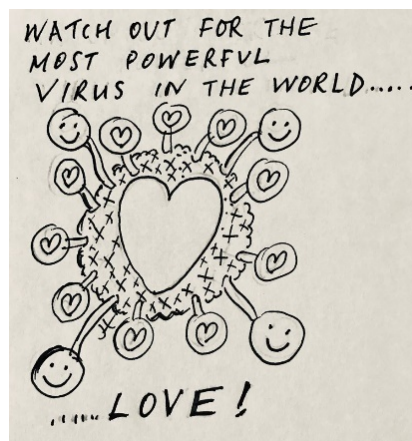 WATCH OUT FOR THE
MOST POWERFUL
VIRUS IN THE WORLD.....
.....LOVE!